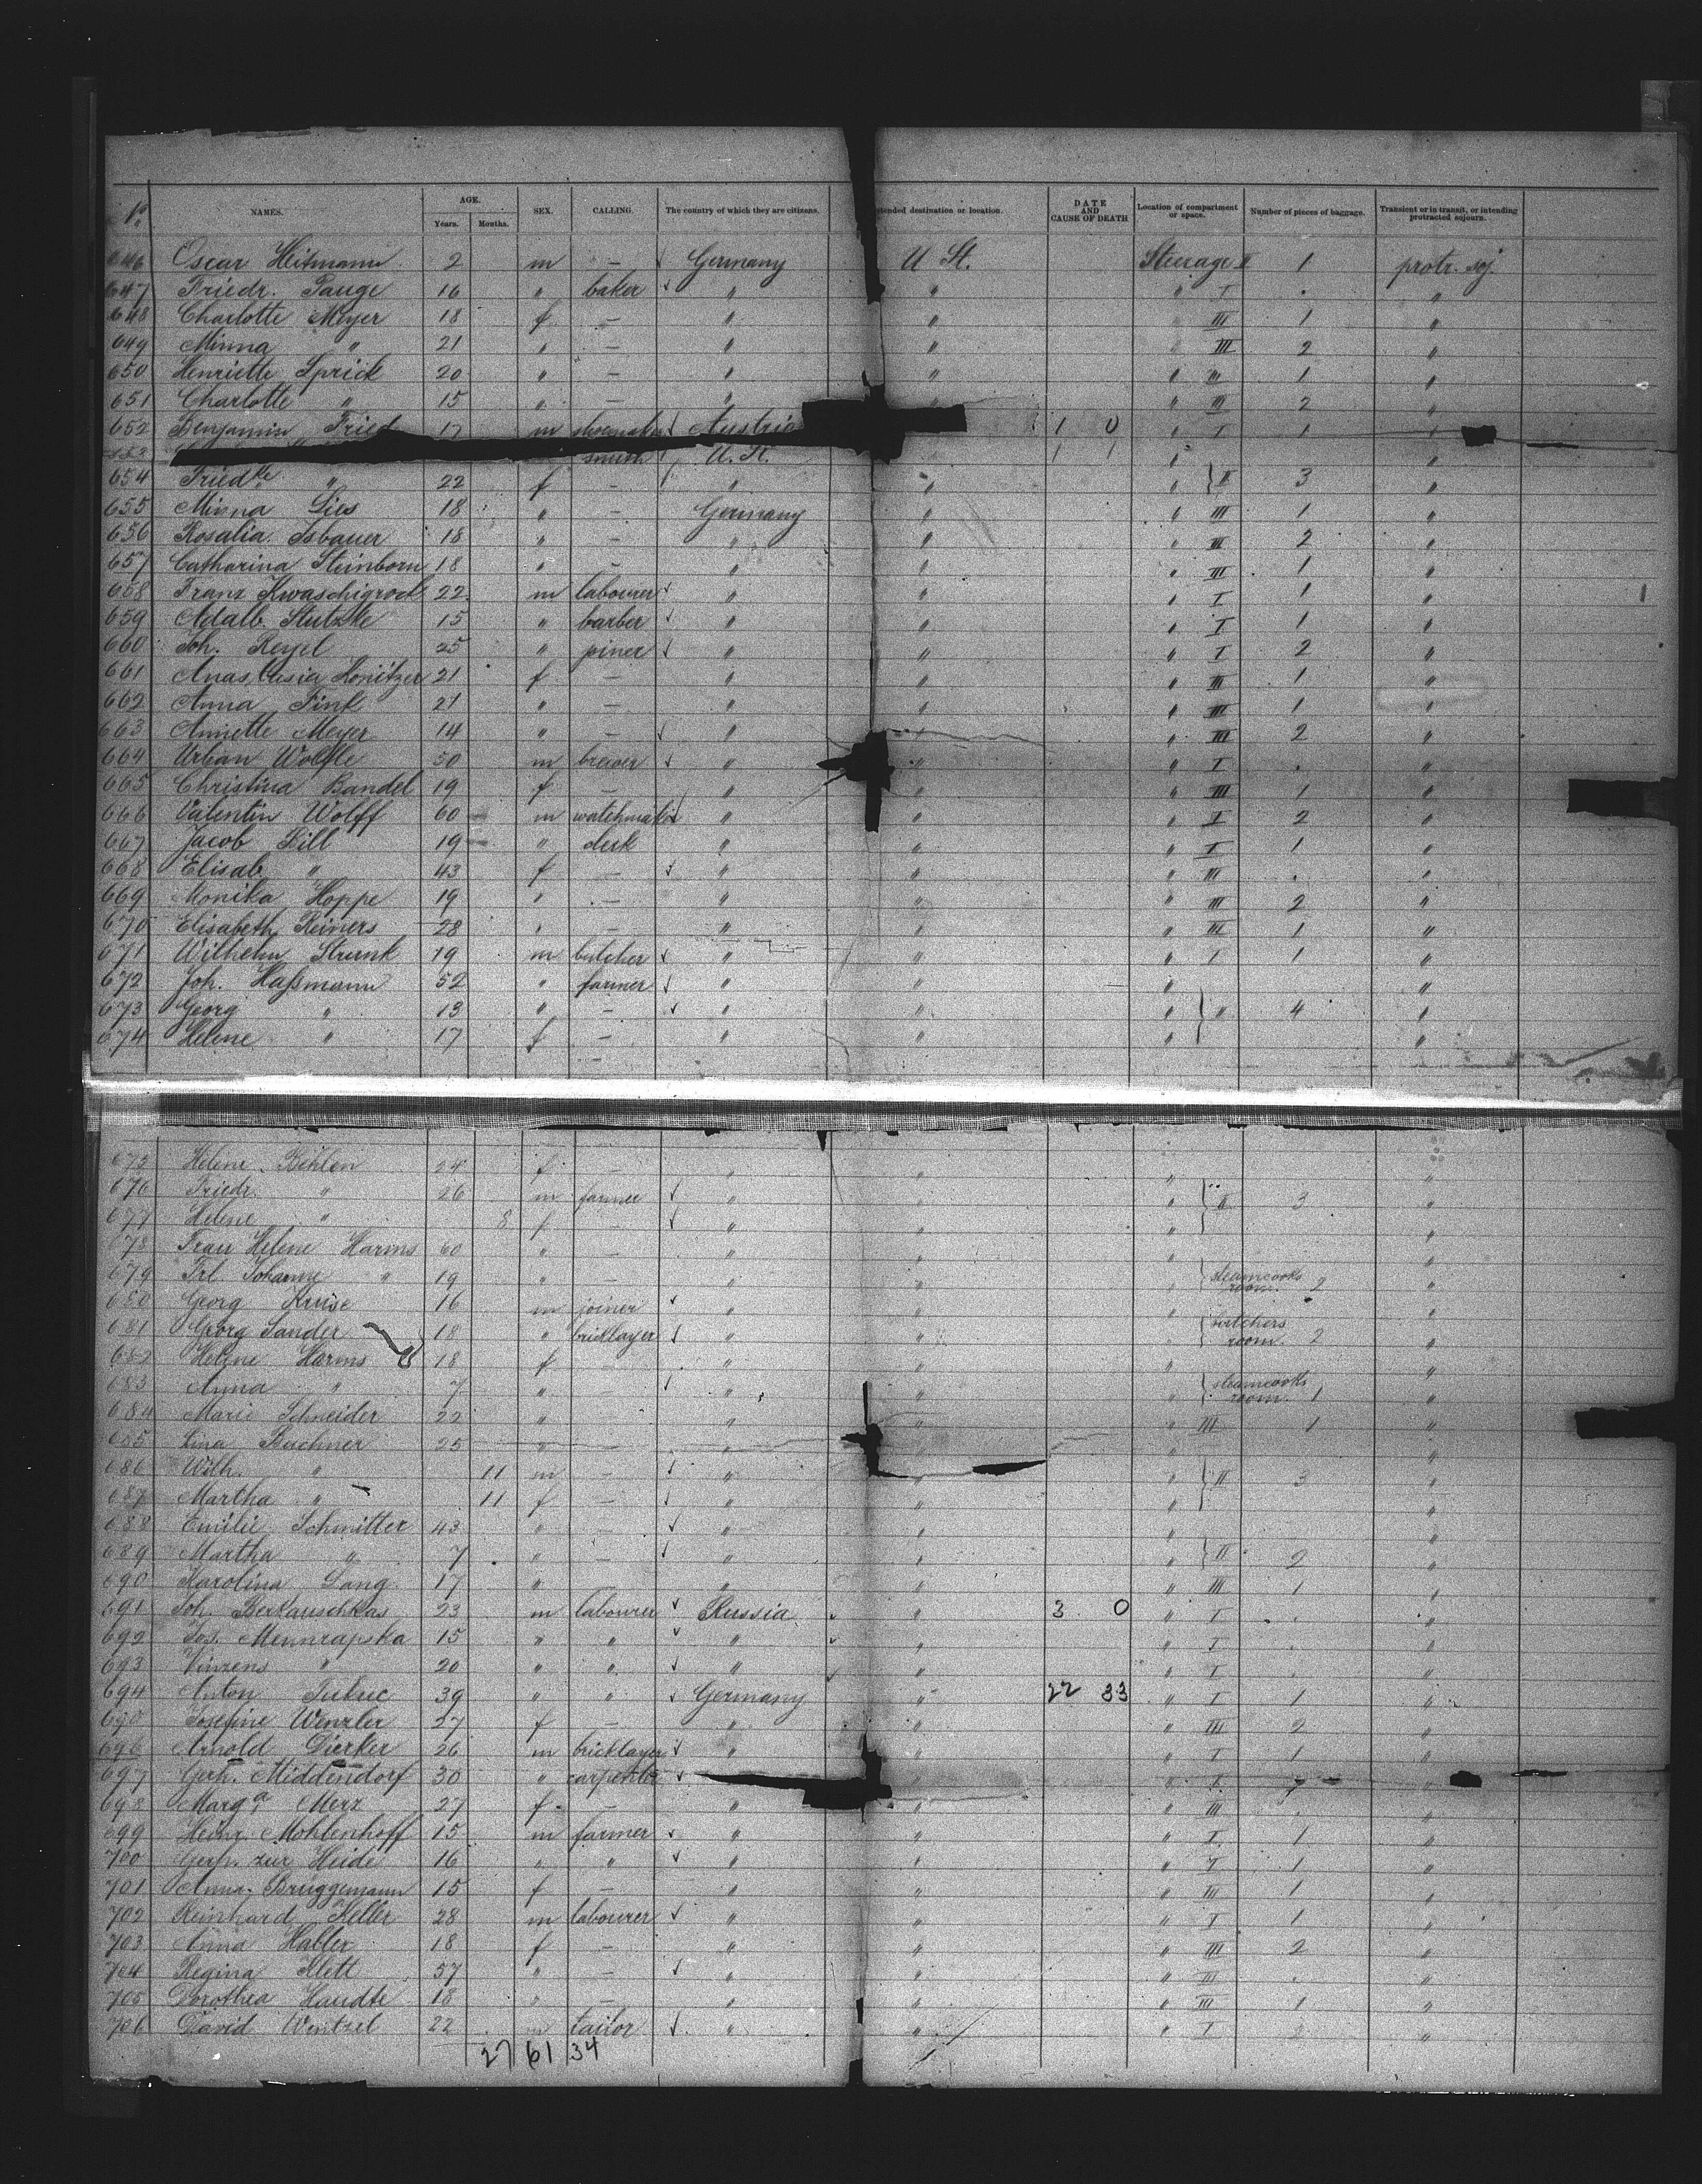 No. NAMES. AGE. Years. Months. SEX. CALLING. The country of which they are citizens. Intended destination or location. DATE AND CAUSE OF DEATH Location of compartment or space. Number of pieces of baggage. Transient or in transit, or intending protracted sojourn.
646 Oscar Heitmann 2 m — ✓ Germany U St. Steerage II 1 protr. soj.
647 Friedr. Pauge 16 " baker ✓ " " " I . "
648 Charlotte Meyer 18 f — " " " III 1 "
649 Minna " 21 " — " " " III 2 "
650 Henriette Sprick 20 " — " " " III 1 "
651 Charlotte " 15 " — " " " III 2 "
652 Benjamin Fried 17 m shoemaker ✓ Austria 1 0 " I 1 "
smith U. St. 1 1 " "
654 Friedke " 22 f — " " " } II 3 "
655 Minna Lies 18 " — Germany " " III 1 "
656 Rosalia Isbauer 18 " — " " " III 2 "
657 Catharina Steinborn 18 " — " " " III 1 "
658 Franz Kwaschigroch 22 m labourer ✓ " " " I 1 "
659 Adalb. Stutzke 15 " barber ✓ " " " I 1 "
660 Joh. Reyel 25 " joiner ✓ " " " I 2 "
661 Anastasia Konitzer 21 f — " " " III 1 "
662 Anna Fink 21 " — " " " III 1 "
663 Annette Meyer 14 " — ✓ " " " III 2 "
664 Urban Wölfle 50 m brewer ✓ " " " I . "
665 Christina Bandel 19 f — " " " III 1 "
666 Valentin Wolff 60 m watchmaker ✓ " " " I 2 "
667 Jacob Lill 19 " clerk " " " I 1 "
668 Elisab. " 43 f — ✓ " " " III . "
669 Monika Hoppe 19 " — " " " III 2 "
670 Elisabeth Reiners 28 " — " " " III 1 "
671 Wilhelm Strunk 19 m butcher ✓ " " " I 1 "
672 Joh. Haßmann 52 " farmer ✓ " " " "
673 Georg " 13 " — ✓ " " " } " 4 "
674 Helene " 17 f — " " " "
675 Helene Behlen 24 f — " " " "
676 Friedr. " 26 m farmer ✓ " " " } II 3 "
677 Helene " 8 f — ✓ " " " "
678 Frau Helene Harms 60 " — " " " "
679 Frl. Johanne " 19 " — " " " } steamcooks room. 2 "
680 Georg Kruse 16 m joiner ✓ " " " "
681 Georg Sander 18 " bricklayer ✓ " " " } butchers room. 2 "
682 Helene Harms 18 f — " " " "
683 Anna " 7 " ✓ " " " } steamcooks room. 1 "
684 Marie Schneider 22 " " " " III 1 "
685 Lina Buchner 25 " — " " " "
686 Wilh. " 11 m — ✓ " " " } II 3 "
687 Martha " 11 f — ✓ " " " "
688 Emilie Schmitter 43 " — ✓ " " " "
689 Martha " 7 " — ✓ " " " } II 2 "
690 Karolina Lang 17 " " " " III 1 "
691 Joh. Berkauschkas 23 m labourer ✓ Russia " 3 0 " I . "
692 Jos. Mennrapska 15 " " ✓ " " " I . "
693 Vinzens " 20 " " ✓ " " " I . "
694 Anton 39 " " ✓ Germany " 22 33 " I 1 "
695 Josefine Wenzler 27 f — " " " III 2 "
696 Arnold Dierker 26 m bricklayer ✓ " " " I 1 "
697 Gerh. Middendorf 30 " carpenter ✓ " I "
698 Marga Merz 27 f — " " " III . "
699 Heinr. Mohlenhoff 15 m farmer ✓ " " " I 1 "
700 Gerh. zur Heide 16 " " ✓ " " " I 1 "
701 Anna Brüggemann 15 f — " " " III 1 "
702 Reinhard Keller 28 m labourer ✓ " " " I 1 "
703 Anna Halter 18 f — " " " III 2 "
704 Regina Klett 57 " — ✓ " " " III . "
705 Dorothea Haudte 18 " — " " " III 1 "
706 David Wentzel 22 m tailor ✓ " " " I 2 "
27 61 34